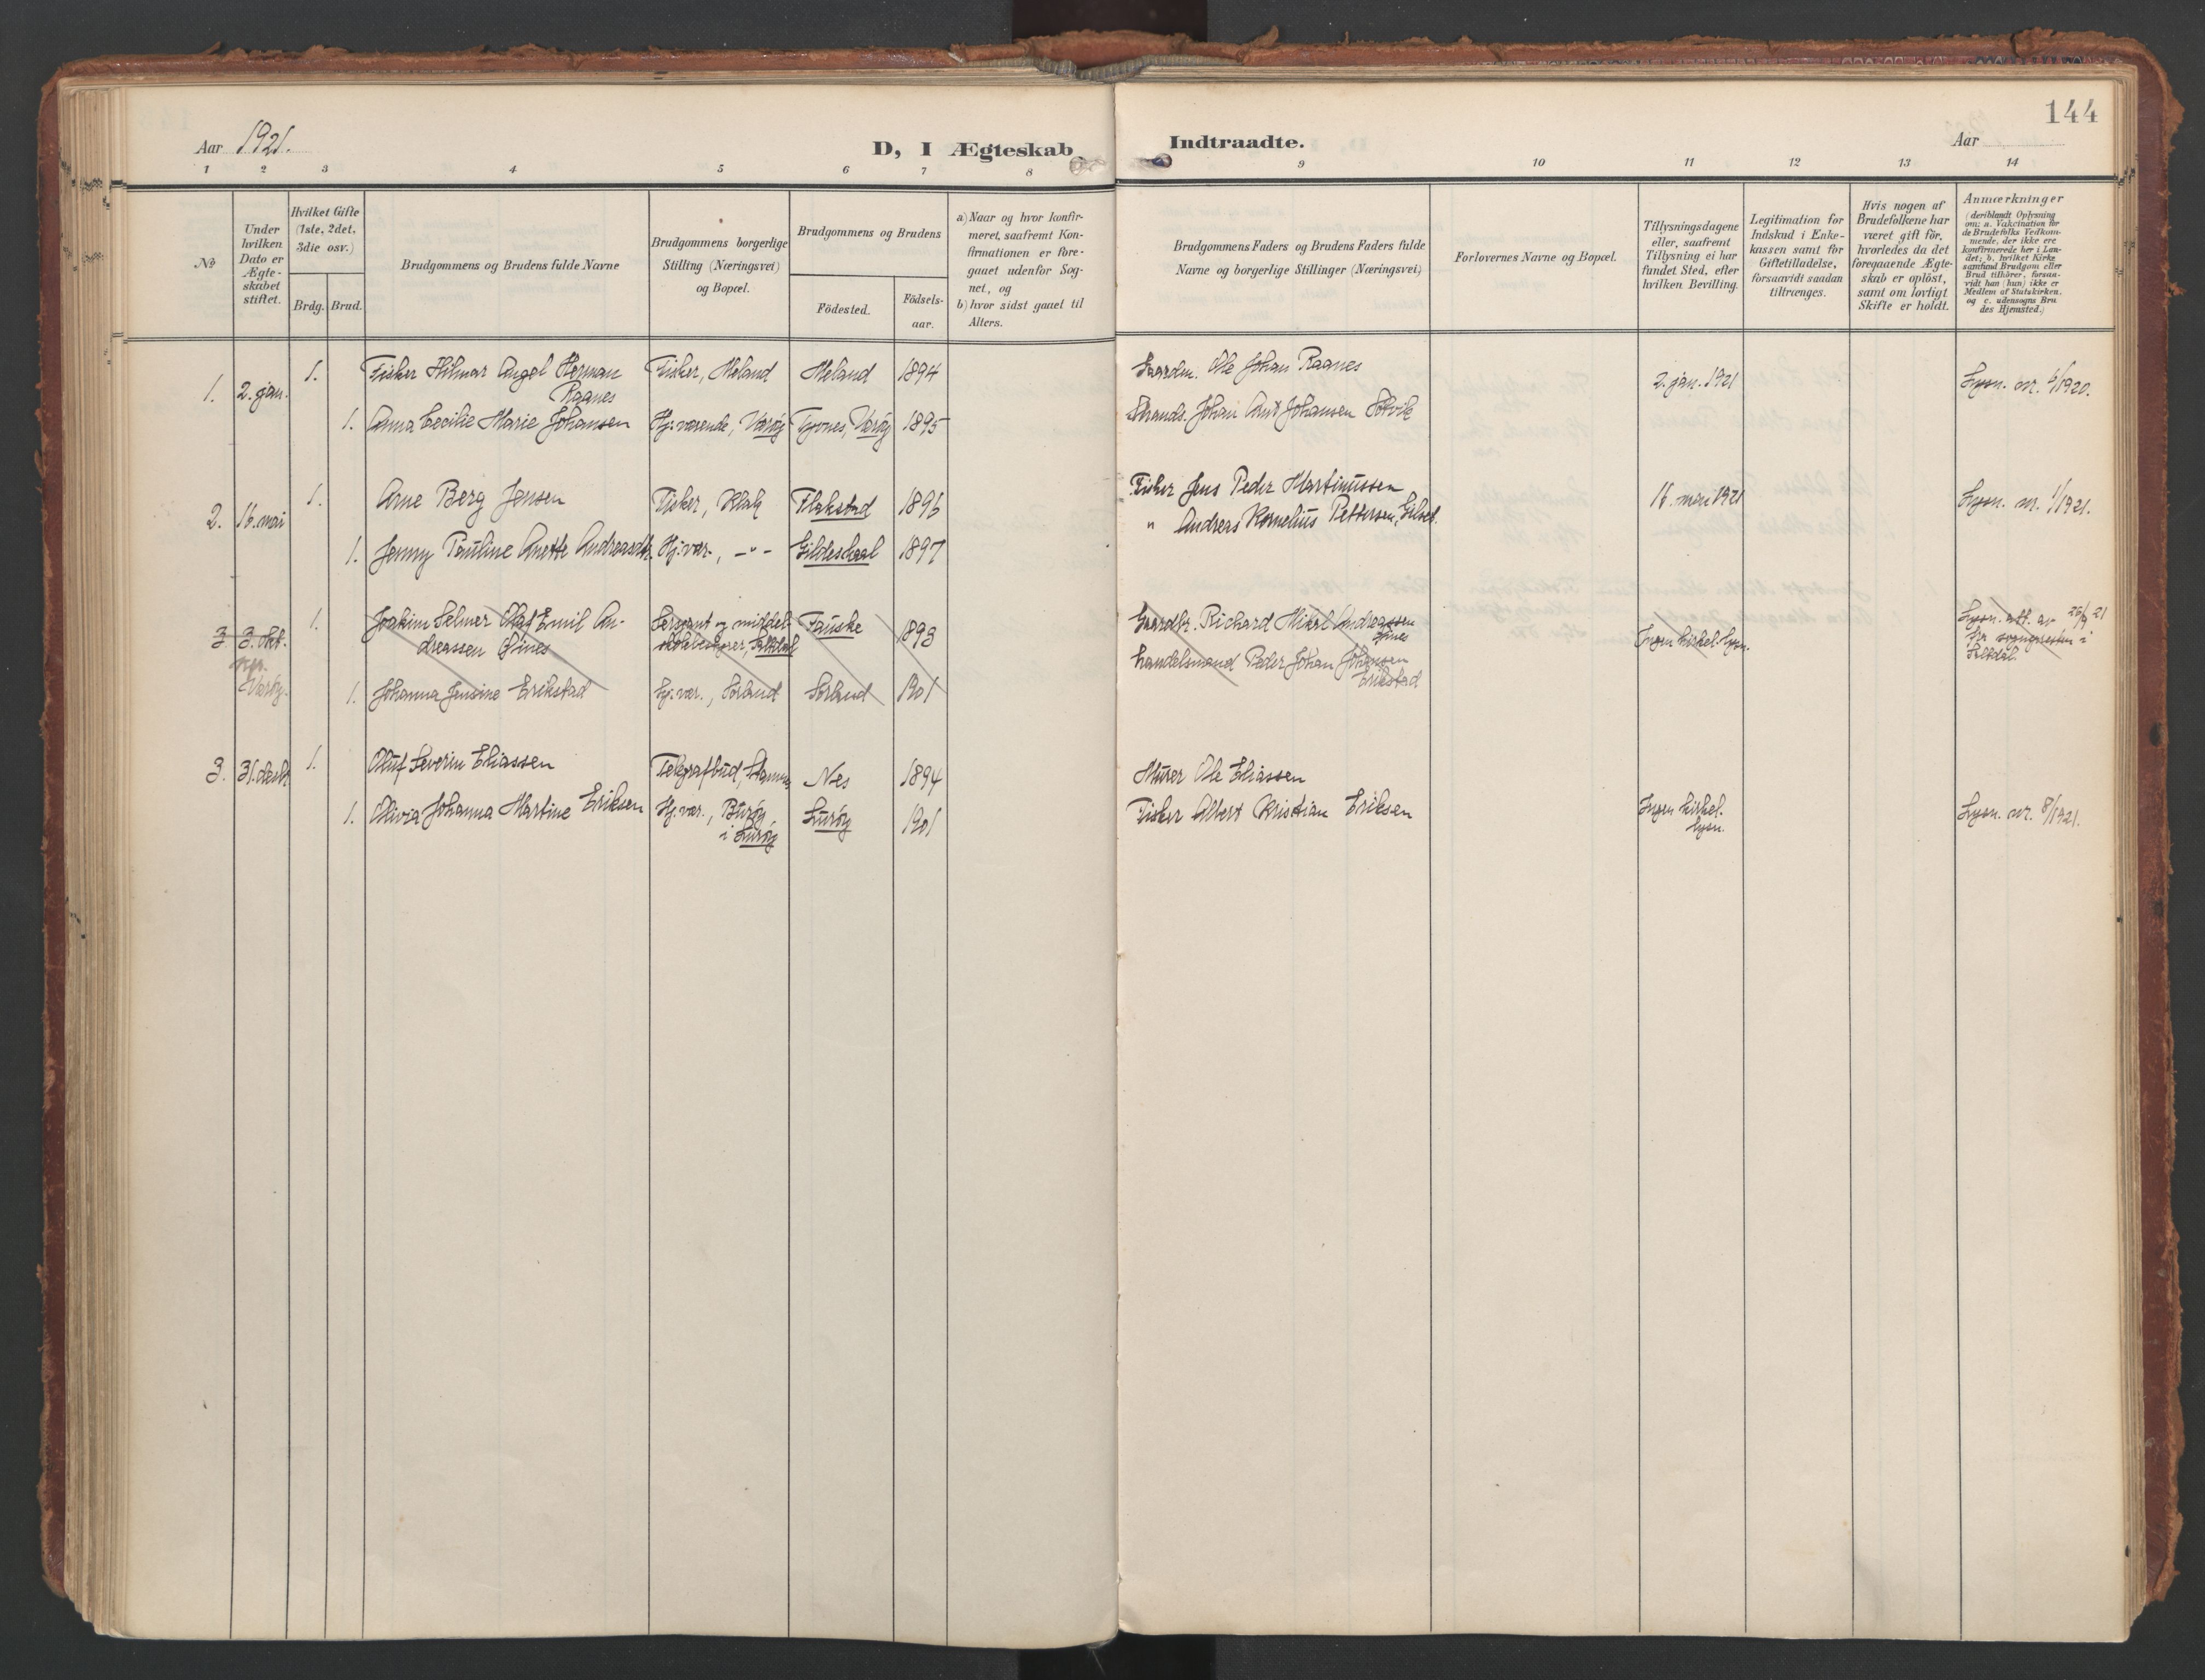 144
Aar 1921.
D, I Ægteskab Indtraadte.
Aar
1 2 3 4 5 6 7 8 9 10 11 12 13 14
№
Under hvilken Dato er Ægte-skabet stiftet.
Hvilket Gifte (1ste, 2det, 3die osv.)
Brdg. Brud.
Brudgommens og Brudens fulde Navne
Brudgommens borgerlige Stilling (Næringsvei) og Bopæl.
Brudgommens og Brudens
Födested.
Födsels-aar.
a) Naar og hvor konfir-meret, saafremt Kon-firmationen er fore-gaaet udenfor Sog-net, og
b) hvor sidst gaaet til Alters.
Brudgommens Faders og Brudens Faders fulde Navne og borgerlige Stillinger (Næringsvei)
Forlovernes Navne og Bopæl.
Tillysningsdagene eller, saafremt Tillysning ei har fundet Sted, efter hvilken Bevilling.
Legitimation for Indskud i Enke-kassen samt for Giftetilladelse, forsaavidt saadan tiltrænges.
Hvis nogen af Brudefolkene har været gift för, hvorledes da det foregaaende Ægte-skab er oplöst, samt om lovligt Skifte er holdt.
Anmærkninger
(deriblandt Oplysning om: a. Vakcination for de Brudefolks Vedkom-mende, der ikke ere konfirmerede her i Lan-det; b. hvilket Kirke samfund Brudgom eller Brud tilhörer, forsaa-vidt han (hun) ikke er Medlem af Statskirken. og c. udensogns Bru des Hjemsted.)
1. 2. jan. 1. Fisker Hilmar Angel Herman Raanes Fisker, Meland Meland 1894 Ole Johan Raanes 2. jan. 1921 Lysn. nr. 6/1920.
1. Anna Cecilie Marie Johansen Hj.værende, Værøy Værøy 1895 Johan Johansen
2. 16. mai 1. Arne Berg Jensen Fisker, Flakstad 1896 Fisker Jens Peder Martinussen 16. mai 1921 Lysn. nr. 1/1921.
1. Jenny Pauline Anette Andreasdtr. Hj.vær., -"- Gildeskaal 1897 " Andreas Kornelius Pettersen, Gilsk.
3. 3. okt. Værøy. 1. Joakim Selmer Olaf Emil Andreassen Sersjant og Fauske 1893 Gaardbr. Richard Mikal Andreassen Ingen kirkel. lysn. Lysn. att. av 26/9 21 fra sognepresten i Saltdal.
1. Johanna Jensine Erikstad Hj.vær., Sørland Sørland 1901 Handelsmand Peder Johan Johansen Erikstad
3. 31. desbr. 1. Oluf Severin Eliassen Telegrafbud, Nes 1894 Murer Ole Eliassen
1. Olivia Johanna Martine Eriksen Hj.vær., Burøy, i Lurøy Lurøy 1901 Fisker Albert Kristian Eriksen Ingen kirkel. lysn. Lysn. nr. 8/1921.